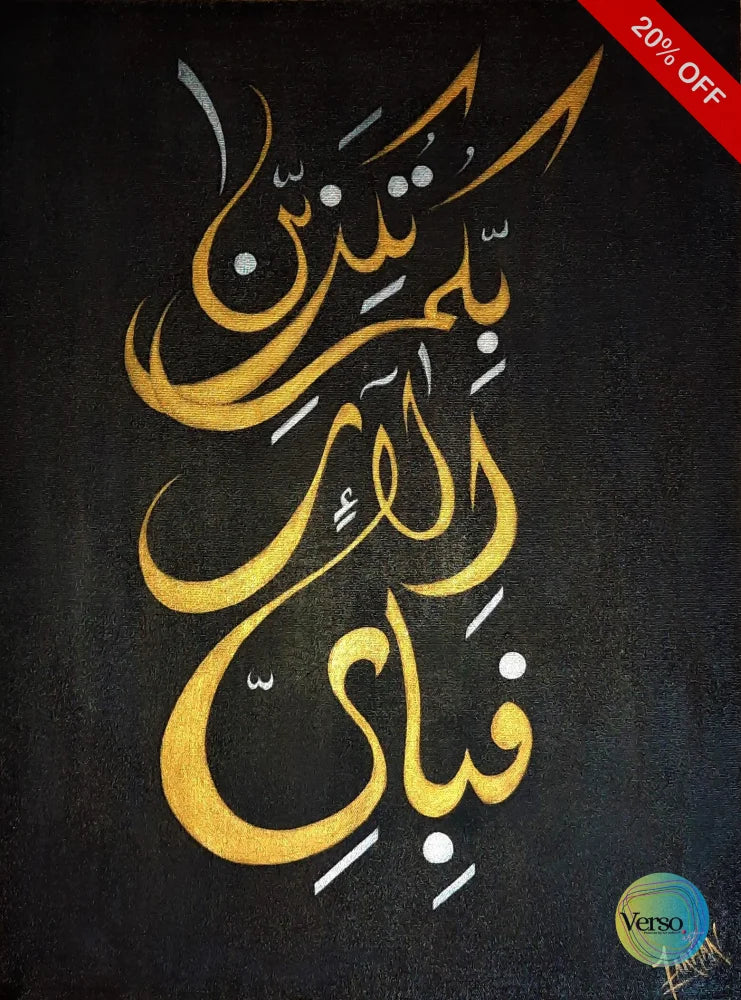 20% OFF
فَبِاَيِّ
اٰلَآءِ رَ
بِّكُمَا
تُكَذِّبٰنِ
Verso